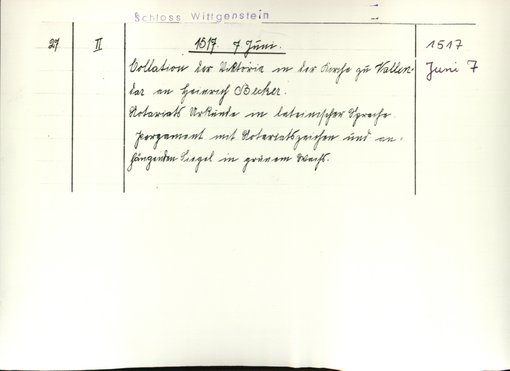 Schloss Wittgenstein
27 II 1517. 7 Juni. 1517
Collation der Viktorie in der Kirche zu Vallen- Juni 7
dar an Heinrich Becker.
Notariats Urkunde in lateinischer Sprache.
Pergament mit Notariatszeichen und an-
hängendem Siegel in grünem Wachs.